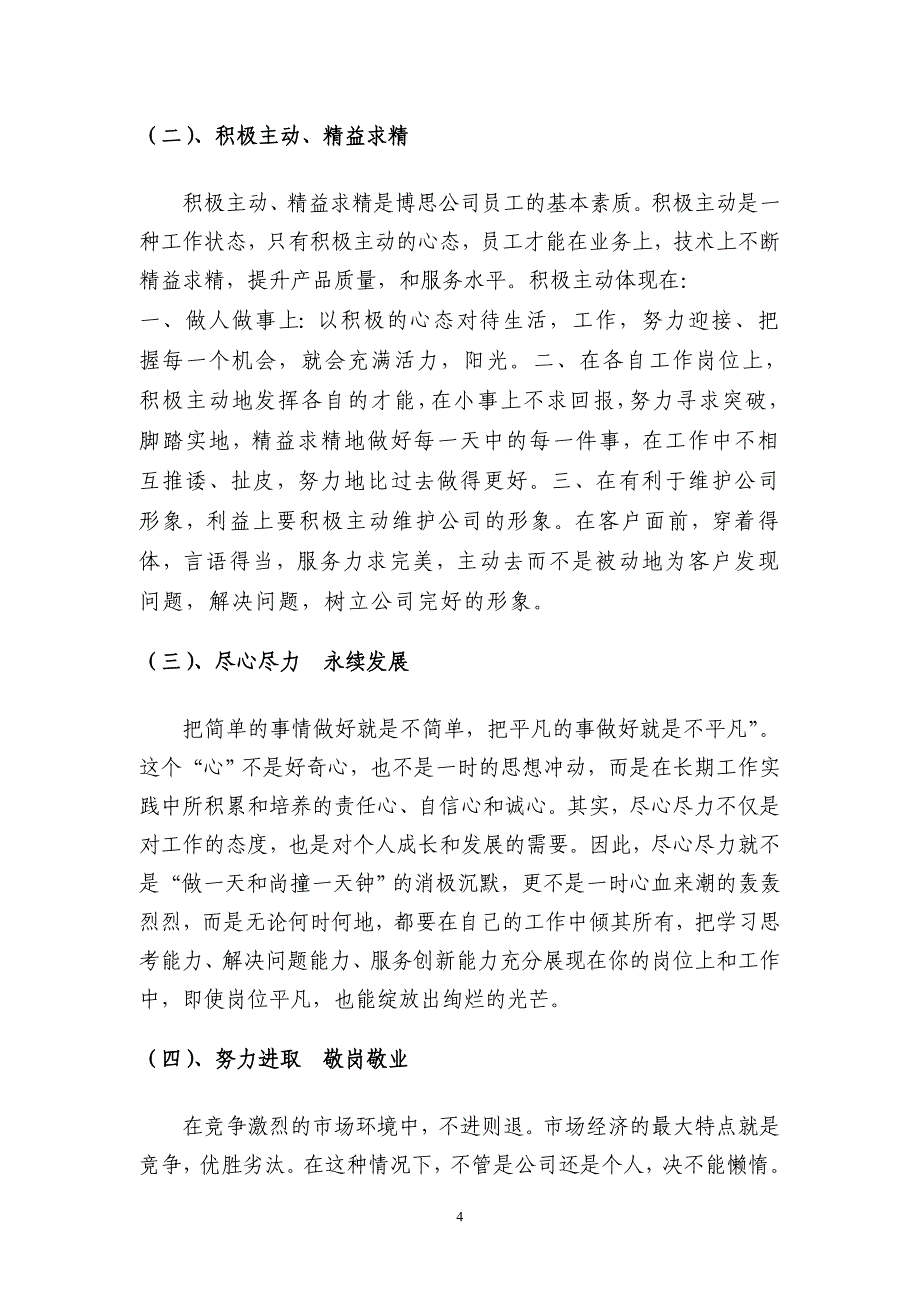 （二）、积极主动、精益求精
积极主动、精益求精是博思公司员工的基本素质。积极主动是一
种工作状态，只有积极主动的心态，员工才能在业务上，技术上不断
精益求精，提升产品质量，和服务水平。积极主动体现在：
一、做人做事上：以积极的心态对待生活，工作，努力迎接、把
握每一个机会，就会充满活力，阳光。二、在各自工作岗位上，
积极主动地发挥各自的才能，在小事上不求回报，努力寻求突破，
脚踏实地，精益求精地做好每一天中的每一件事，在工作中不相
互推诿、扯皮，努力地比过去做得更好。三、在有利于维护公司
形象，利益上要积极主动维护公司的形象。在客户面前，穿着得
体，言语得当，服务力求完美，主动去而不是被动地为客户发现
问题，解决问题，树立公司完好的形象。
（三）、尽心尽力　永续发展
把简单的事情做好就是不简单，把平凡的事做好就是不平凡”。
这个“心”不是好奇心，也不是一时的思想冲动，而是在长期工作实
践中所积累和培养的责任心、自信心和诚心。其实，尽心尽力不仅是
对工作的态度，也是对个人成长和发展的需要。因此，尽心尽力就不
是“做一天和尚撞一天钟”的消极沉默，更不是一时心血来潮的轰轰
烈烈，而是无论何时何地，都要在自己的工作中倾其所有，把学习思
考能力、解决问题能力、服务创新能力充分展现在你的岗位上和工作
中，即使岗位平凡，也能绽放出绚烂的光芒。
（四）、努力进取　敬岗敬业
在竞争激烈的市场环境中，不进则退。市场经济的最大特点就是
竞争，优胜劣汰。在这种情况下，不管是公司还是个人，决不能懒惰。
4